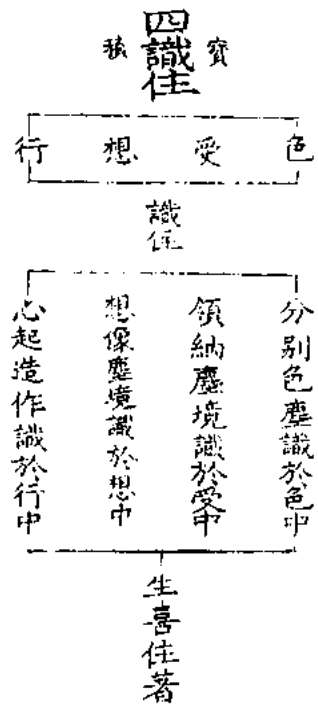 四識住
寶積
色
受
想
行
識住
分別色塵識於色中
領納塵境識於受中
想像塵境識於想中
心起造作識於行中
生喜住著